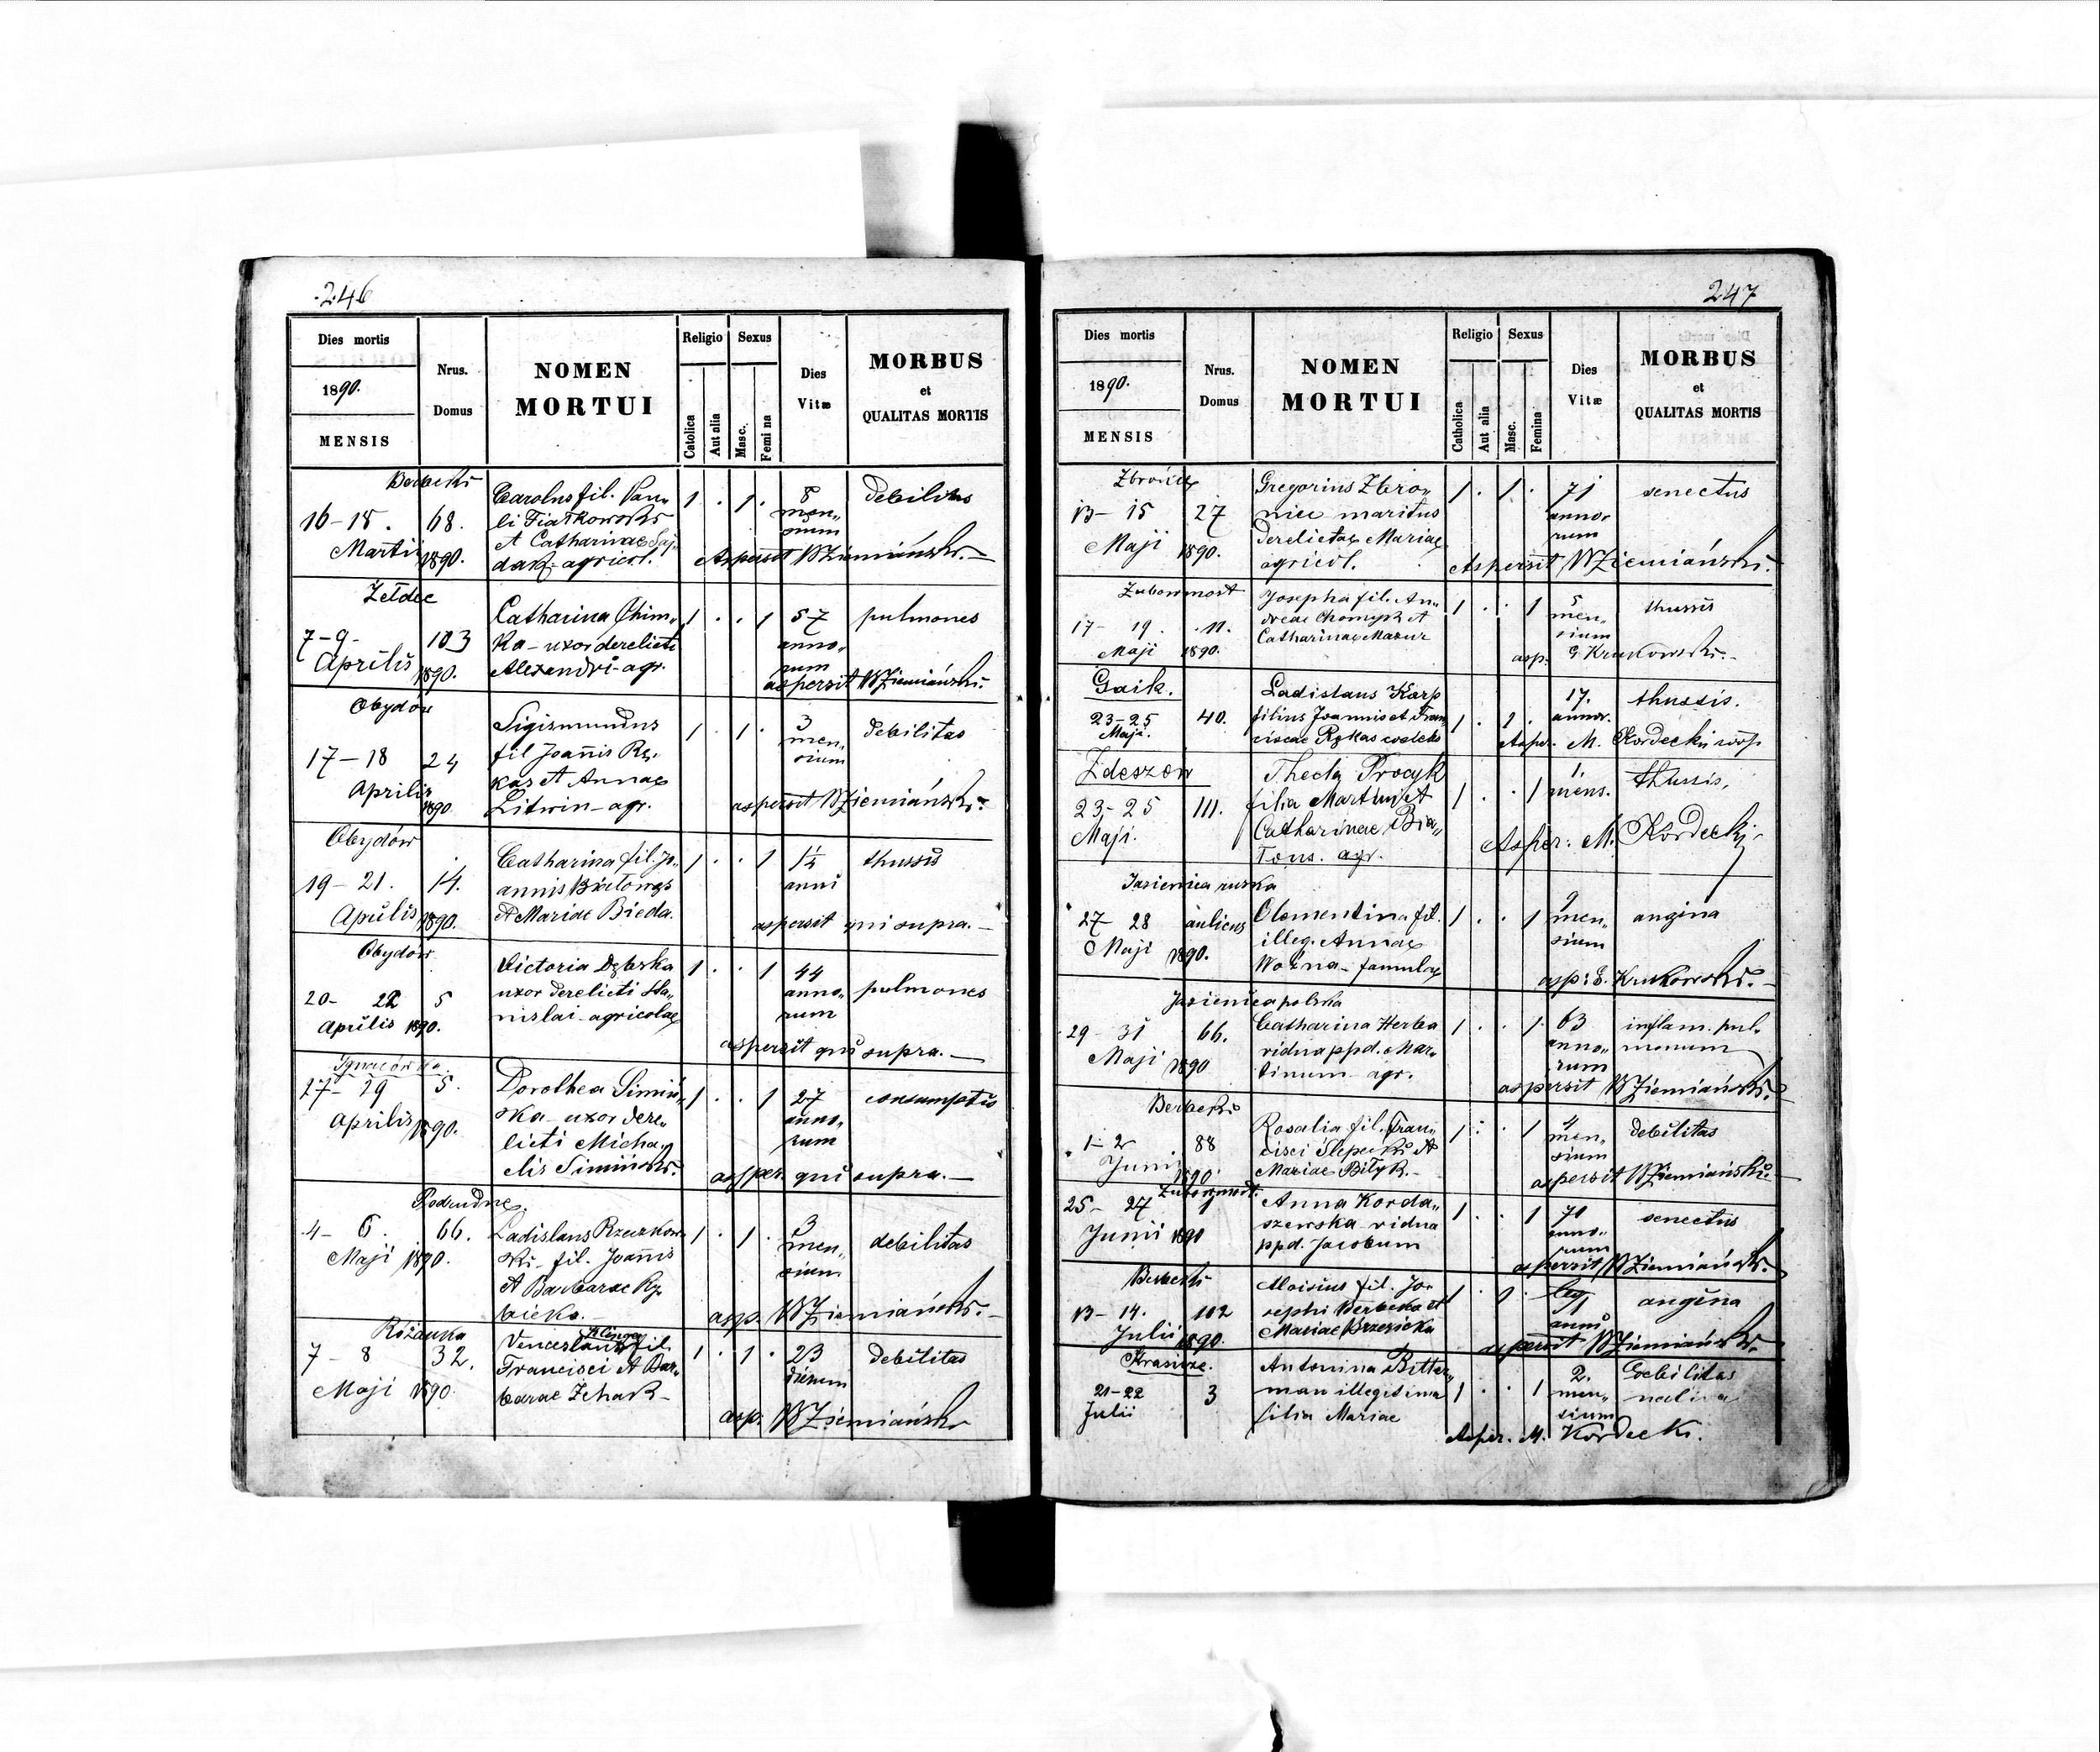 246
Dies mortis
1890.
MENSIS
Nrus.
Domus
NOMEN
MORTUI
Religio
Catolica
Aut alia
Sexus
Masc.
Femina
Dies
Vitæ
MORBUS
et
QUALITAS MORTIS
Berbeki
16-18. 68.
Martii 1890.
Carolus fil. Pau„
li Fiałkowski
et Catharinae Saj„
dak agricol.
1 . 1 .
8
men„
sium
debilitas
Aspersit WZiemiański.—
Żełdec
7-9- 103
Aprilis 1890.
Catharina Chim„
ka - uxor derelicti
Alexandri - agr.
1 . . 1
57
anno„
rum
pulmones
aspersit WZiemiański.
Obydów
17-18 24
Aprilis 1890.
Sigismundus
fil Joannis Rę„
kas et Annae
Litwin - agr.
1 . 1 .
3
men„
sium
debilitas
aspersit WZiemiański.
Obydów
19-21. 14.
Aprilis 1890.
Catharina fil. Jo„
annis Białowąs
et Mariae Bieda.
1 . . 1
1¼
anni
thussis
aspersit qui supra.—
Obydów
20- 22 5
Aprilis 1890.
Victoria Dębska
uxor derelicti Sta„
nislai - agricolae
1 . . 1
44
anno„
rum
pulmones
aspersit qui supra.—
Ignacówka.
27-29 5.
Aprilis 1890.
Dorothea Simiń„
ska - uxor dere„
licti Micha„
elis Simiński.
1 . . 1
27
anno„
rum
consumptis
asper. qui supra.—
Rudne.
4- 6. 66.
Maji 1890.
Ladislaus Rzeczkow
ski - fil. Joannis
et Barbarae Ry„
bicka.—
1 . 1 .
3
men„
sium
debilitas
asp. WZiemiański.-
Różanka
7-8 32.
Maji 1890.
Klinger
Venceslaus fil.
Francisci et Bar„
barae Żehak-
1 . 1 .
23
dierum
debilitas
asp. WZiemiański
247
Dies mortis
1890.
MENSIS
Nrus.
Domus
NOMEN
MORTUI
Religio
Catholica
Aut alia
Sexus
Masc.
Femina
Dies
Vitæ
MORBUS
et
QUALITAS MORTIS
13-15 27
Maji 1890.
Gregorius Zbro„
nice maritus
derelictae Mariae
agricol.
1 . 1 .
71
anno„
rum
senectus
Aspersit WZiemiański.
Zubowmost
17- 19. 11.
Maji 1890.
Josepha fil. An„
dreae Chomyk et
Catharinae Mazur
1 . . 1
5
men„
sium
thussis
asp. G Krukowski.-
Gaik.
23-25 40.
Maji.
Ladislaus Karp
filius Joannis et Fran„
ciscae Rękas
1 . 1 .
17.
annor.
thussis.
Asper. M. Kordecki
Zdeszów
23-25 111.
Maji.
Thecla Procyk
filia Martini et
Catharinae Bia„
łous. agr.
1 . . 1
1.
mens.
thussis,
Asper: M. Kordecki
Jasienica ruska
27- 28 aulicus
Maji 1890.
Clementina fil.
illeg. Annae
Woźna - famulae
1 . . 1
9
men„
sium
angina
asp: G. Krukowski.-
Jasienica polska
29- 31 66.
Maji 1890
Catharina Herba
vidua ppd. Mar„
tinum - agr.
1 . . 1.
63
anno„
rum
inflam. pul„
monum
aspersit WZiemiański.
Berbeki
1-2 88
Junii 1890
Rosalia fil. Fran„
cisci Ślepecki et
Mariae Biłyk-
1 . . 1
4
men„
sium
debilitas
aspersit WZiemiański.-
Zubowmost.
25- 27
Junii 1890
Anna Korda„
szewska - vidua
ppd. Jacobum
1 . . 1
70
anno„
rum
senectus
aspersit WZiemiański.
Berbeki
13-14. 102
Julii 1890.
Aloisius fil. Jo„
sephi Berbeka et
Mariae Brzezicka
1 . 1 .
anni
angina
aspersit WZiemiański.
Krasicze.
21-22 3
Julii
Antonina Bitter„
man illegitima
filia Mariae
1 . . 1
2.
men„
sium
Debilitas
nativa
Asper. M. Kordecki.